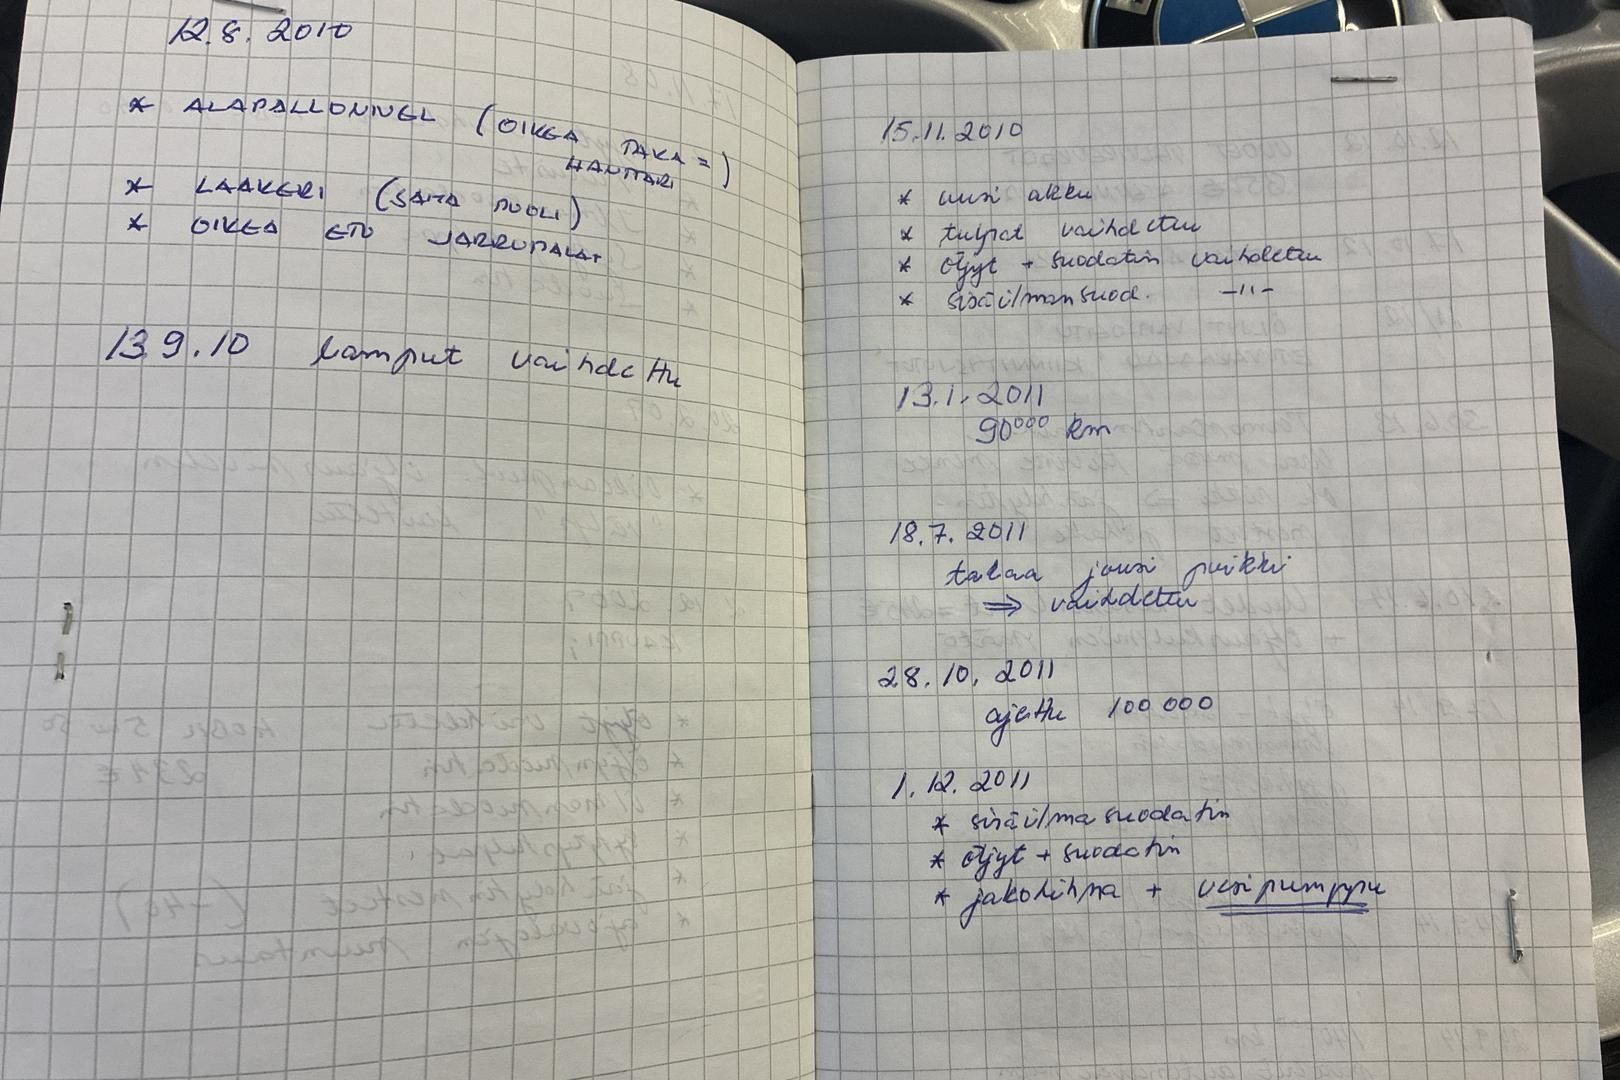 12.8. 2010
* ALAPALLONIVEL (OIKEA TAKA =)
HANTTARI
* LAAKERI (SAMA PUOLI)
* OIKEA ETU JARRUPALAT
13.9.10 lamput vaihdettu
15.11.2010
* uusi akku
* tulpat vaihdettu
* öljyt + suodatin vaihdettu
* sisäilmansuod. -11-
13.1.2011
90000 km
18.7.2011
takaa jousi poikki
⇒ vaihdettu
28.10.2011
ajettu 100 000
1.12.2011
* sisäilmasuodatin
* öljyt + suodatin
* jakohihna + vesipumppu